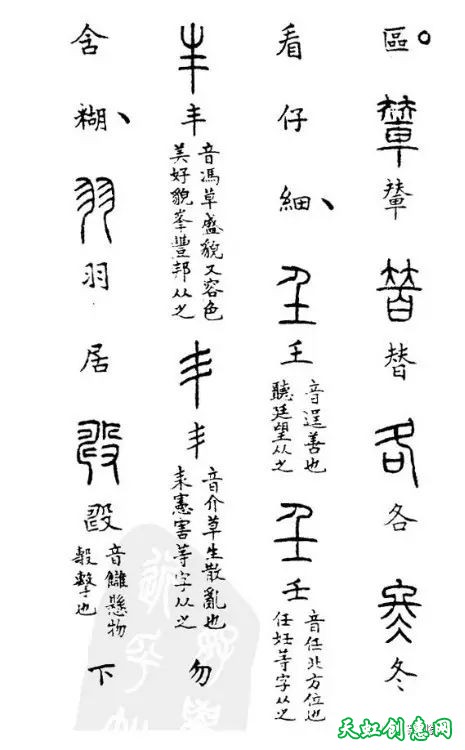 區。輦輦替替各各冬冬
看仔細、𡈼𡈼
音逞善也
聽廷望从之
壬壬
音任北方位也
任妊等字从之
丰丰
音馮草盛貌又容色
美好貌峯豐邦从之
丯丯
音介草生散亂也
耒憲害等字从之
勿
含糊、羽羽居
音讎懸物
擊也
下
天虹创意网